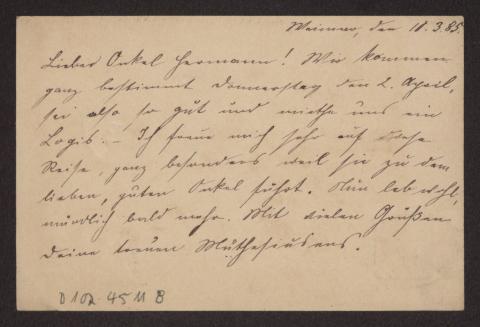 Weimar, den 18.3.85.
Lieber Onkel Hermann! Wir kommen
ganz bestimmt Donnerstag den 2. April,
sei also so gut und miethe uns ein
Logis. – Ich freue mich sehr auf diese
Reise, ganz besonders weil sie zu dem
lieben, guten Onkel führt. Nun leb wohl,
mündlich bald mehr. Mit vielen Grüßen
Deine treuen Müthesiusens.
D 102 4511 B